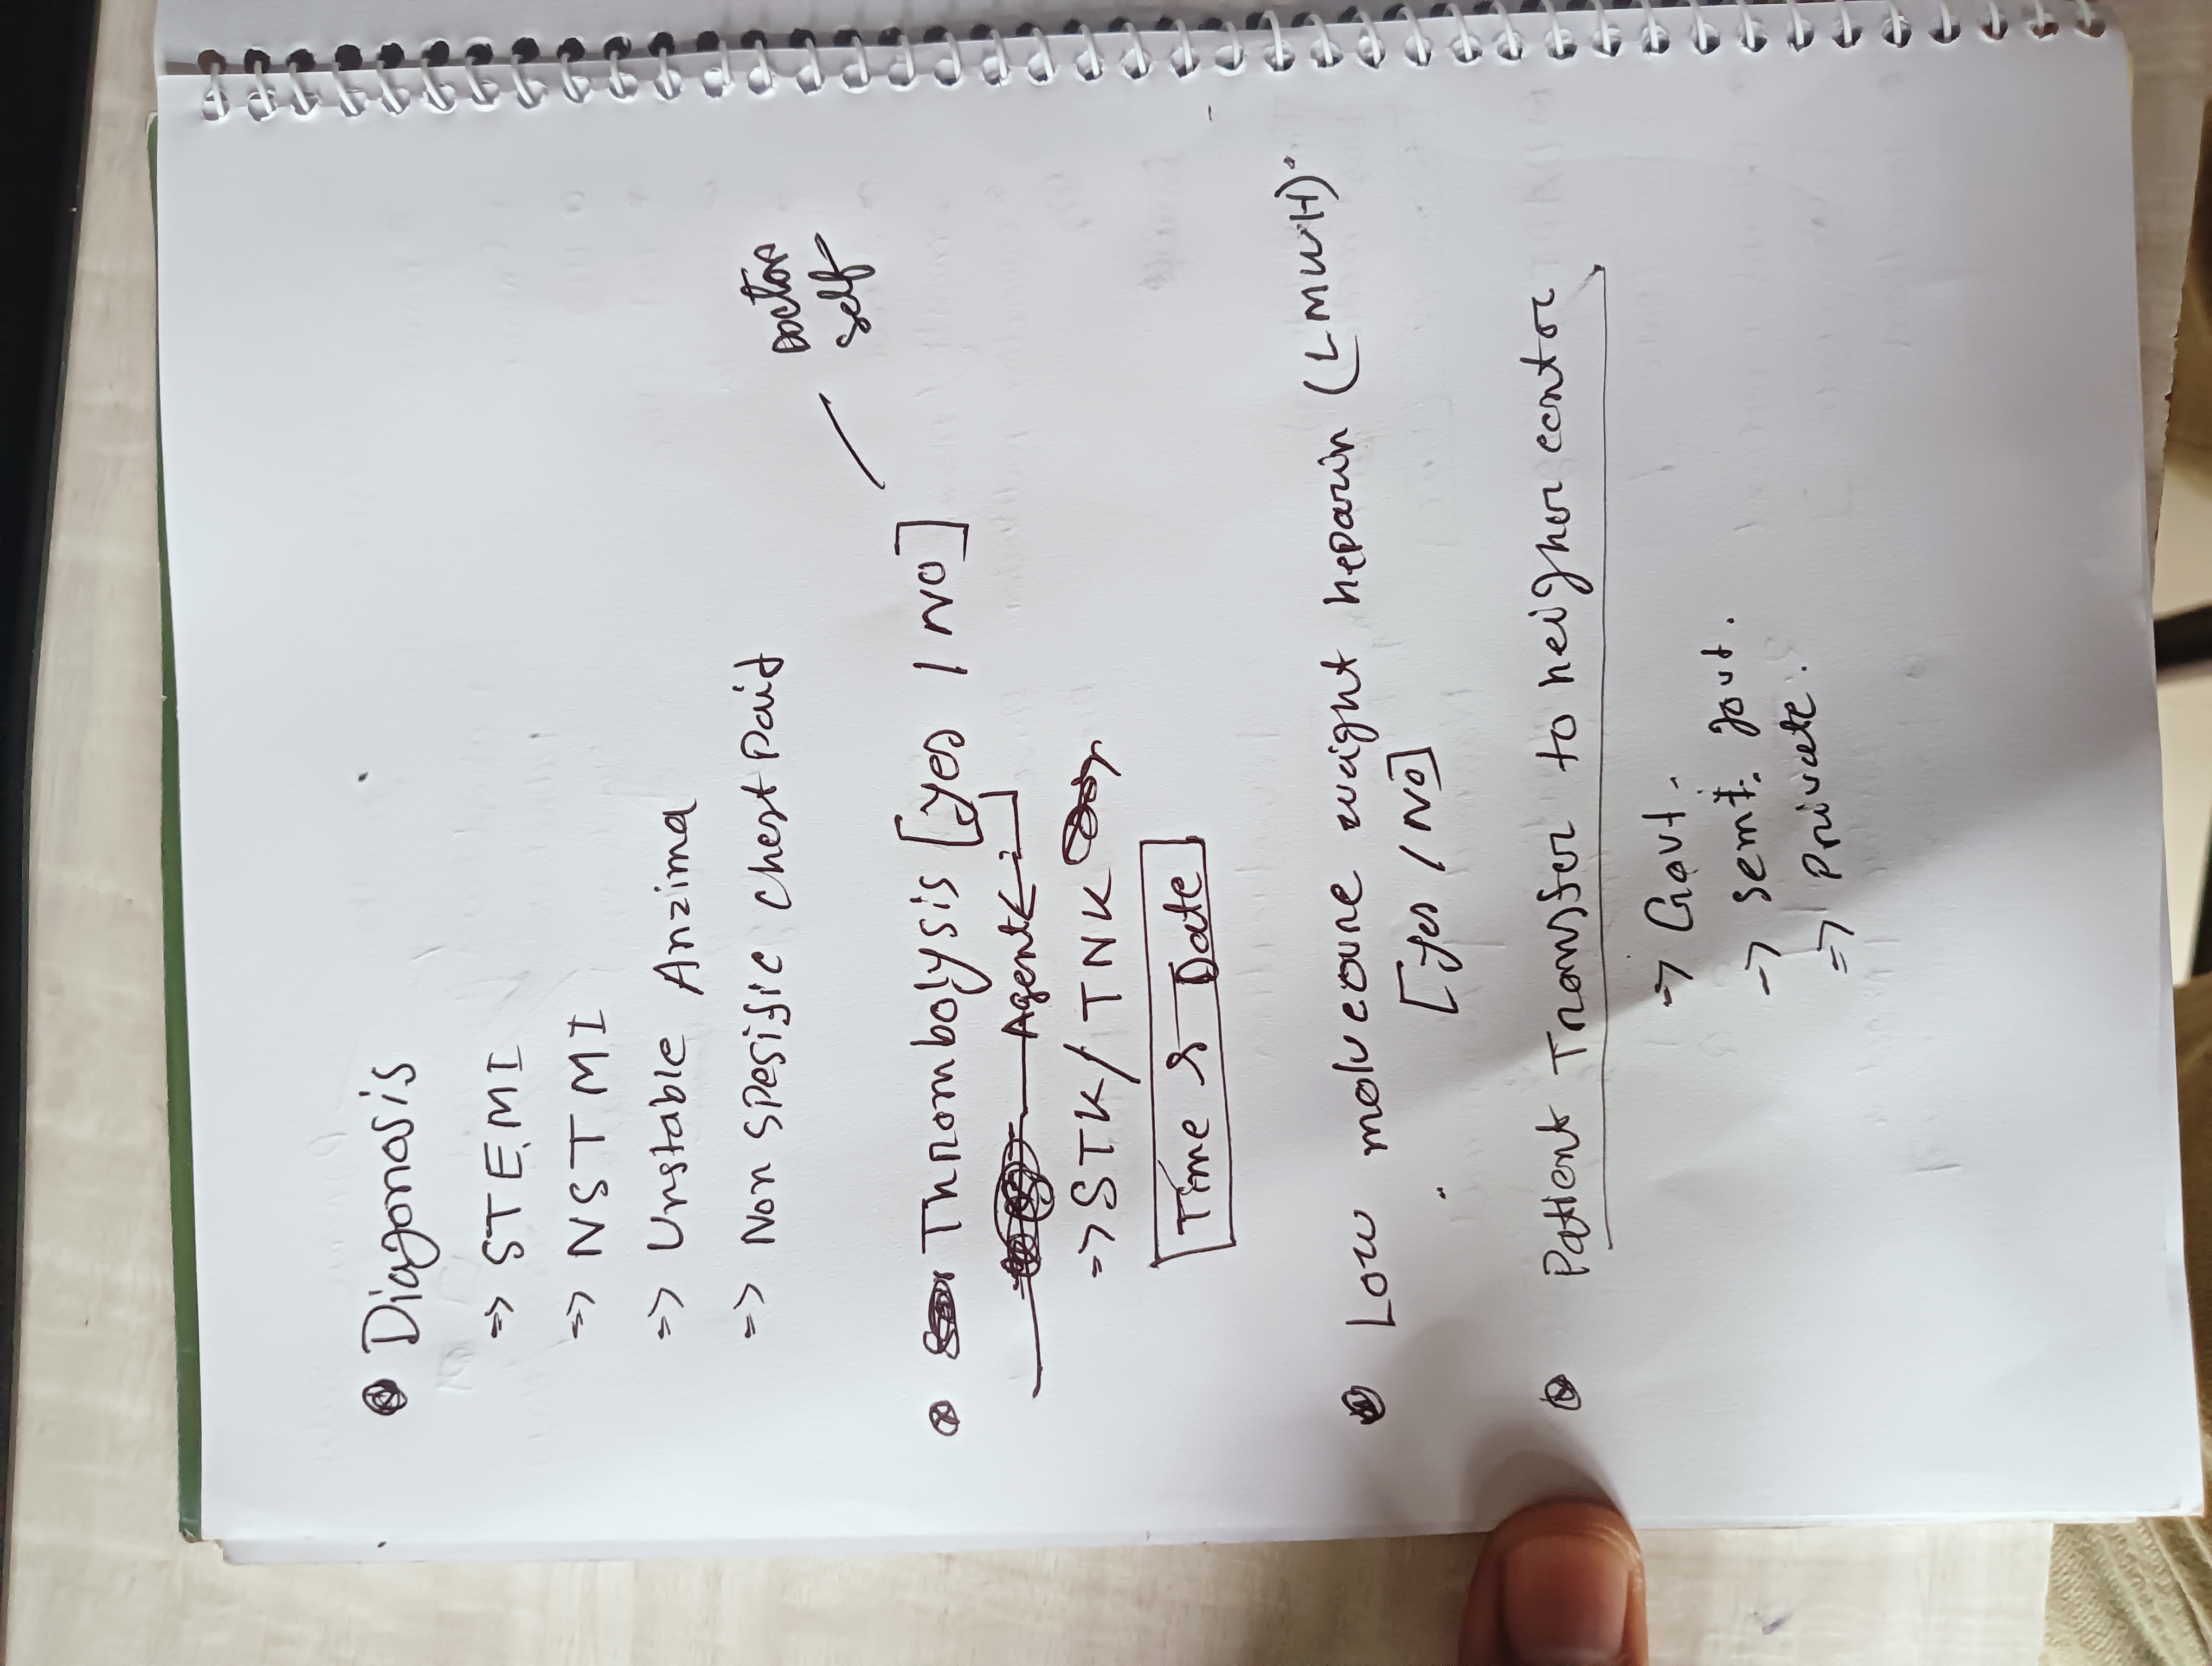 Diagonosis
=> STEMI
=> NSTMI
=> Unstable Anzima
=> Non spesific chest Paid
Doctor
self
Thrombolysis [yes / NO]
Agent
=> STK / TNK
Time & Date
Low moluecoure weight heparin (LMWH)
[yes / No]
Patient Transfer to heigher centor
=> Govt.
=> semi. govt.
=> Private.